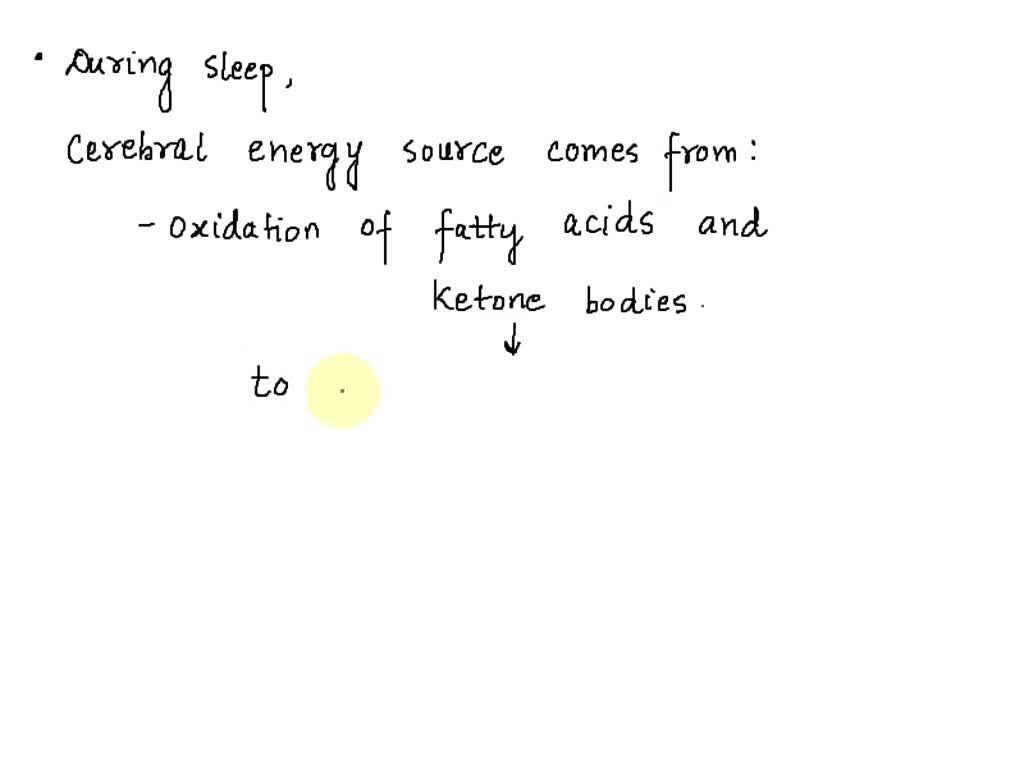 • During sleep,
Cerebral energy source comes from:
- oxidation of fatty acids and
ketone bodies.
↓
to